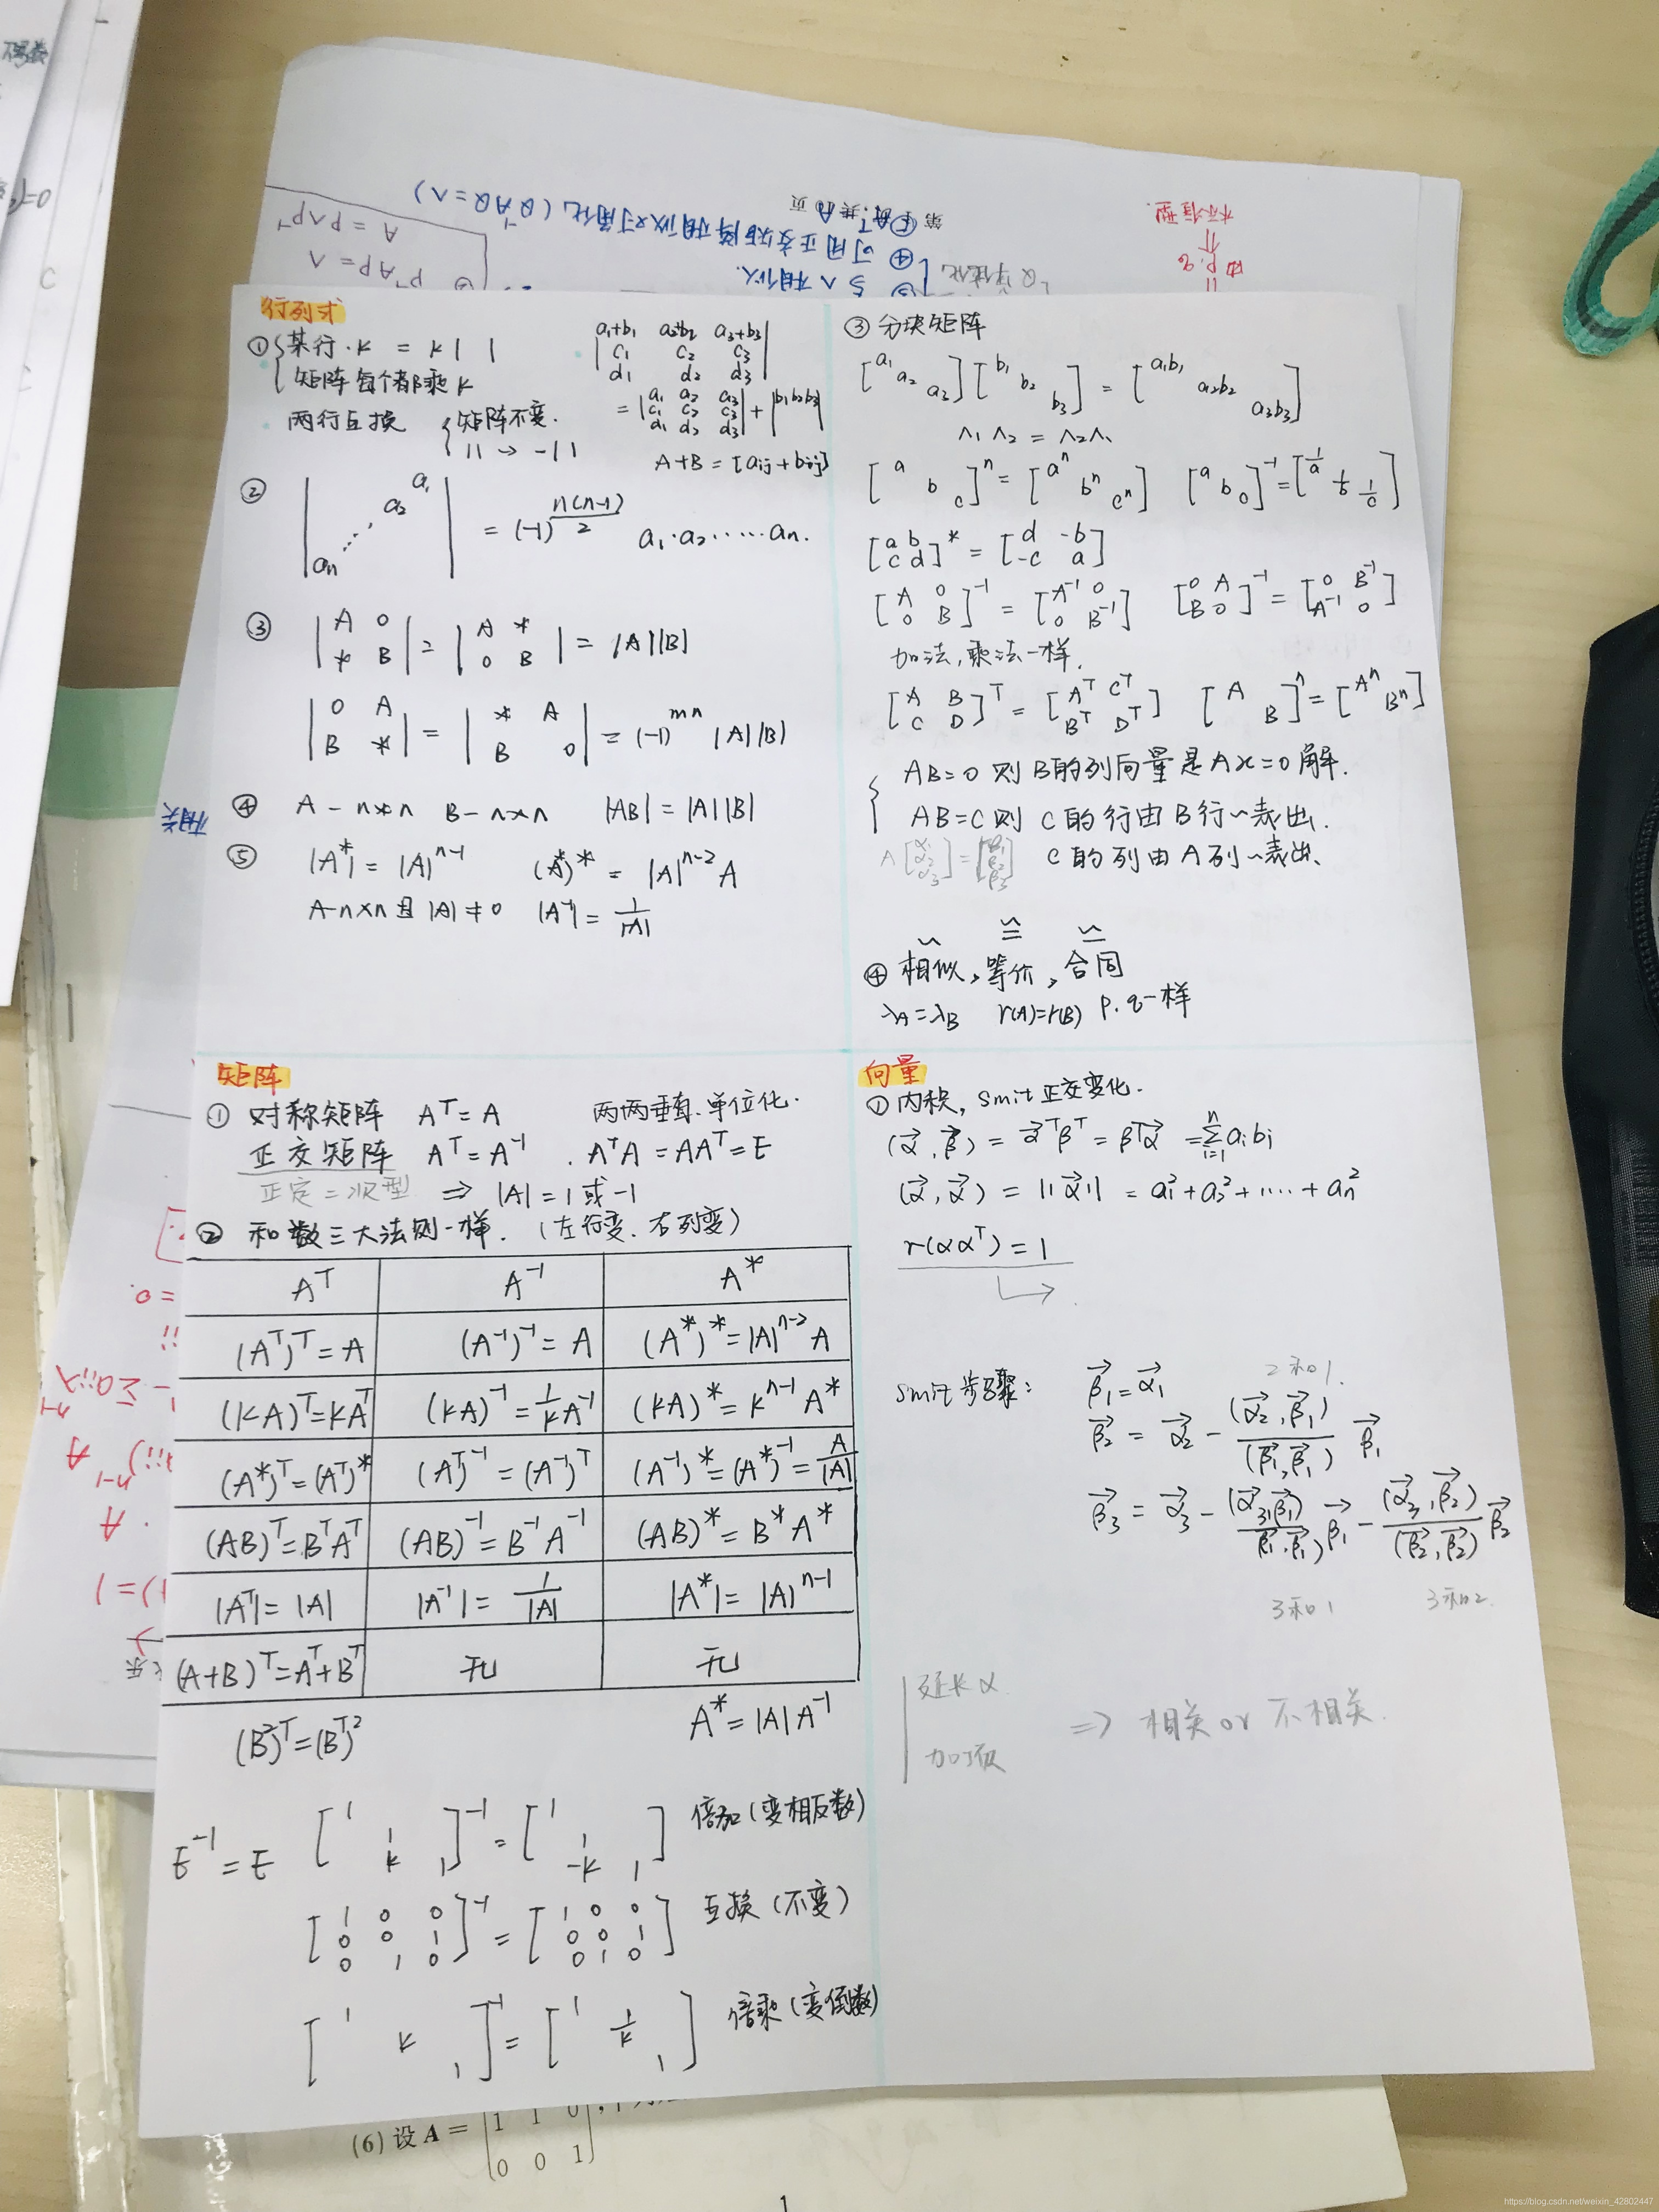 行列式
① 某行·k = k| |
矩阵每个都乘k
两行互换 矩阵不变.
|| → -||
| a₁+b₁ a₂+b₂ a₃+b₃ |
| c₁ c₂ c₃ |
| d₁ d₂ d₃ |
= | a₁ a₂ a₃ | + | b₁ b₂ b₃ |
| c₁ c₂ c₃ |
| d₁ d₂ d₃ |
A+B = [aij + bij]
② | a₁ a₂ ⋯ an | = (-1)^(n(n-1)/2) a₁·a₂·····an.
③ | A 0 ; * B | = | A * ; 0 B | = |A||B|
| 0 A ; B * | = | * A ; B 0 | = (-1)^(mn) |A||B|
④ A-n×n B-n×n |AB| = |A||B|
⑤ |A*| = |A|^(n-1) (A*)* = |A|^(n-2) A
A-n×n 且 |A|≠0 |A⁻¹| = 1/|A|
③ 分块矩阵
[a₁ a₂ a₃][b₁ b₂ b₃] = [a₁b₁ a₂b₂ a₃b₃]
Λ₁Λ₂ = Λ₂Λ₁
[a b c]^n = [a^n b^n c^n] [a b c]⁻¹ = [1/a 1/b 1/c]
[a b ; c d]* = [d -b ; -c a]
[A 0 ; 0 B]⁻¹ = [A⁻¹ 0 ; 0 B⁻¹] [0 A ; B 0]⁻¹ = [0 B⁻¹ ; A⁻¹ 0]
加法,乘法一样.
[A B ; C D]^T = [A^T C^T ; B^T D^T] [A B]^n = [A^n B^n]
AB=0 则 B的列向量是 Ax=0 解.
AB=C 则 C的行由B行~表出.
C的列由A列~表出.
A[α₁ α₂ α₃] = [β₁ β₂ β₃]
∽ ≌ ≃
④ 相似,等价,合同
λA=λB r(A)=r(B) p.q一样
矩阵
① 对称矩阵 A^T = A 两两垂直.单位化.
正交矩阵 A^T = A⁻¹ . A^T A = A A^T = E
正定=次型 ⇒ |A| = 1 或 -1
② 和数三大法则一样. (左行变.右列变)
A^T A⁻¹ A*
(A^T)^T = A (A⁻¹)⁻¹ = A (A*)* = |A|^(n-2) A
(kA)^T = kA^T (kA)⁻¹ = 1/k A⁻¹ (kA)* = k^(n-1) A*
(A*)^T = (A^T)* (A^T)⁻¹ = (A⁻¹)^T (A⁻¹)* = (A*)⁻¹ = A/|A|
(AB)^T = B^T A^T (AB)⁻¹ = B⁻¹A⁻¹ (AB)* = B*A*
|A^T| = |A| |A⁻¹| = 1/|A| |A*| = |A|^(n-1)
(A+B)^T = A^T + B^T 无 无
(B²)^T = (B^T)² A* = |A|A⁻¹
E⁻¹ = E [1 ; 1 ; k 1]⁻¹ = [1 ; 1 ; -k 1] 倍加(变相反数)
[1 0 0 ; 0 0 1 ; 0 1 0]⁻¹ = [1 0 0 ; 0 0 1 ; 0 1 0] 互换(不变)
[1 k 1]⁻¹ = [1 1/k 1] 倍乘(变倒数)
向量
① 内积, smit正交变化.
(α⃗,β⃗) = α⃗^T β^T = β^T α⃗ = Σ(i=1,n) ai bi
(α⃗,α⃗) = ||α⃗|| = a₁²+a₂²+····+an²
r(αα^T) = 1
smit步骤: β⃗₁ = α⃗₁ 2和1.
β⃗₂ = α⃗₂ - (α⃗₂,β⃗₁)/(β⃗₁,β⃗₁) β⃗₁
β⃗₃ = α⃗₃ - (α⃗₃,β⃗₁)/(β⃗₁,β⃗₁) β⃗₁ - (α⃗₃,β⃗₂)/(β⃗₂,β⃗₂) β⃗₂
3和1 3和2.
延长α
⇒ 相关 or 不相关.
④ 可用正交矩阵相似对角化(Q⁻¹AQ=Λ)
与Λ相似.
P⁻¹AP = Λ
A = PΛP⁻¹
标准型.
由p.q
相关
(6) 设 A = [1 1 0 ; 0 0 1]
1
https://blog.csdn.net/weixin_42802447